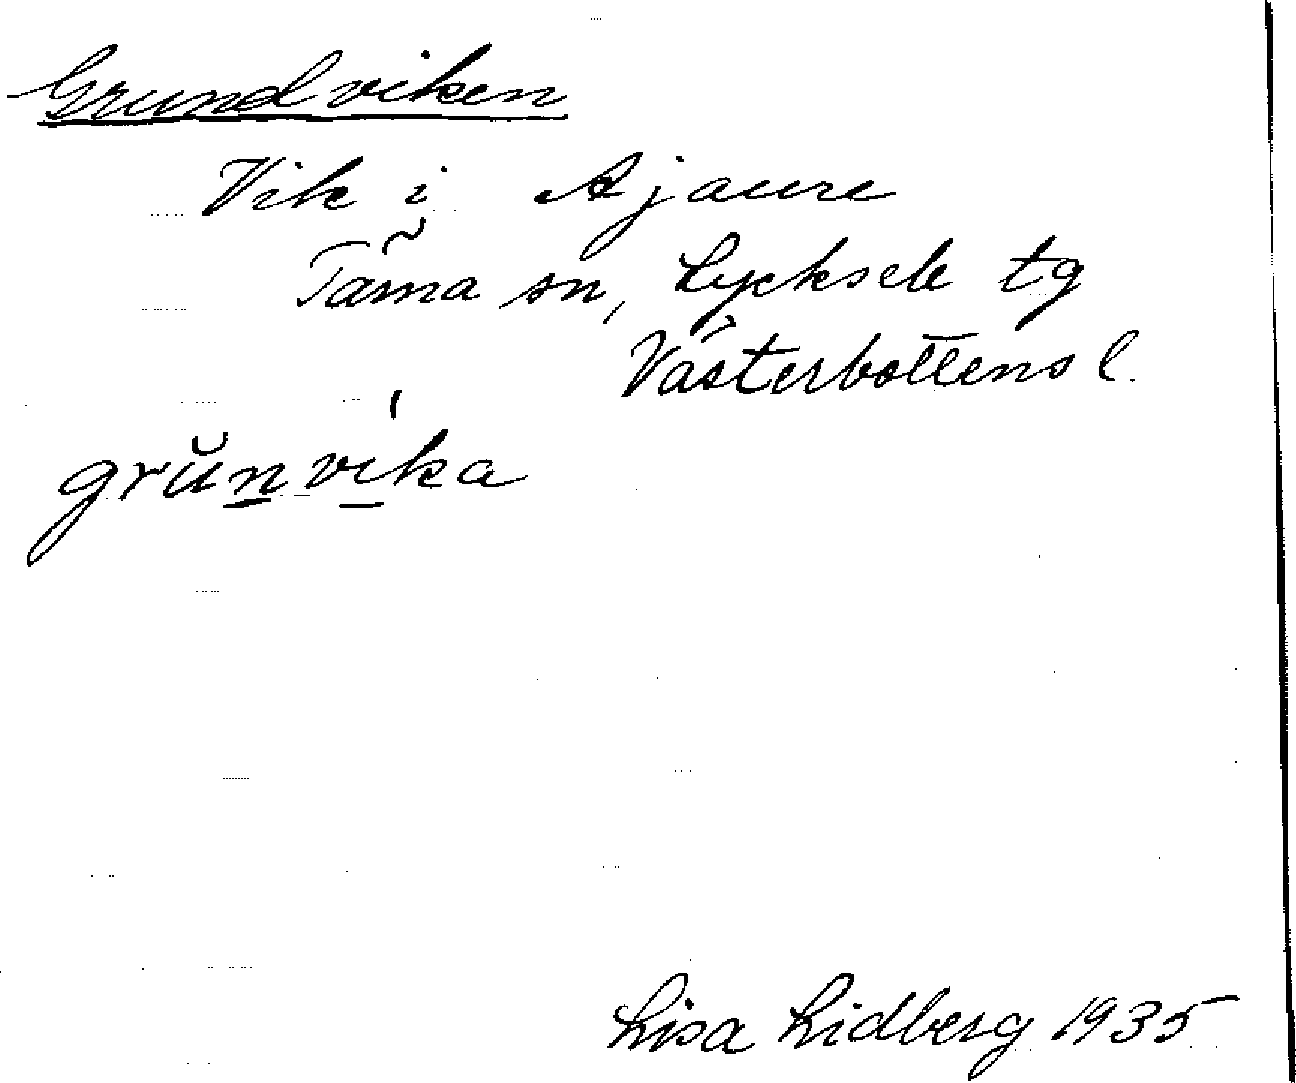 Grundviken
Vik i Ajaure
Tärna sn, Lycksele tg
Västerbottens l.
grŭn̲vi̲ka
Lisa Lidberg 1935